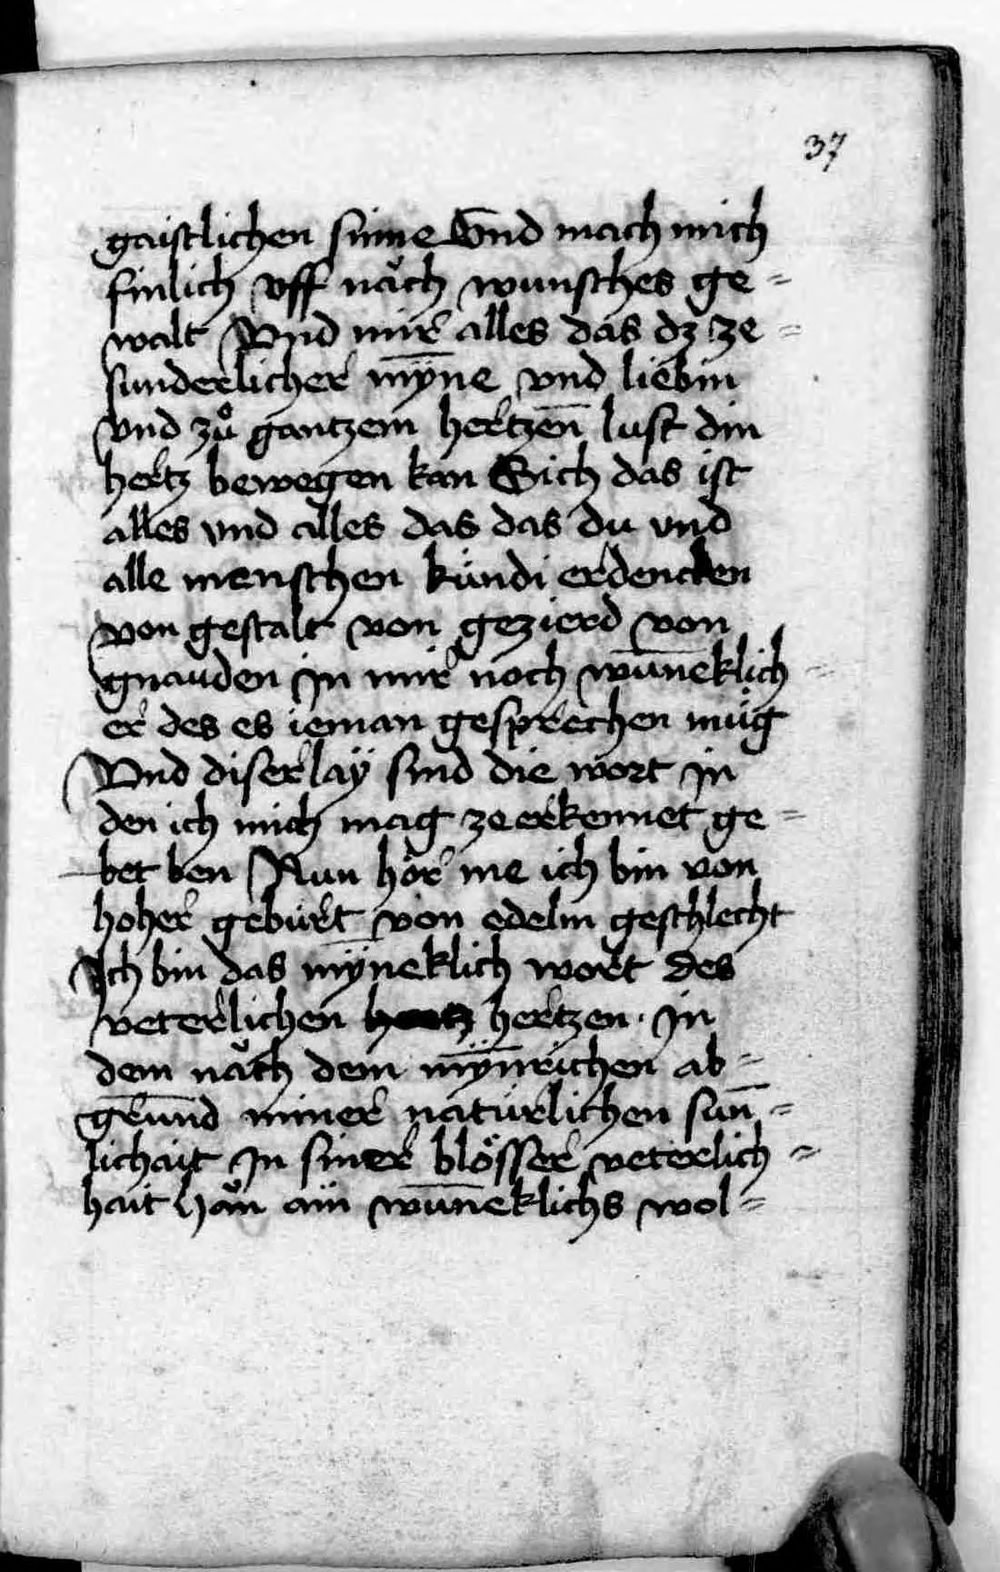 37
gaistlichen sinne Vnd mach mich
sinlich vff nǎch wunsches ge=
walt Vnd mir alles das dz ze=
sunderlicher mȳne vnd liebin
vnd zů gantzem hertzen̄ lust din
hertz bewegen kan Sich das ist
alles vnd alles das das du vnd
alle menschen kündi erdencken
von gestalt von gezierd von
gnauden In mir noch wūneklich=
er des es ieman gesprechen müg
Vnd diserlaÿ sind die wort In
den ich mich mag ze erkennet ge=
ben Nun hör me ich bin von
hoher gebürt von edelm geschlecht
Ich bin das mȳneklich wort des
veterlichen hertzen. In
dem nǎch dem mȳnrichen ab=
grund miner natürlichen sun̄=
lichait In siner blösser veterlich=
hait Hǎn ain wūneklichs wol=